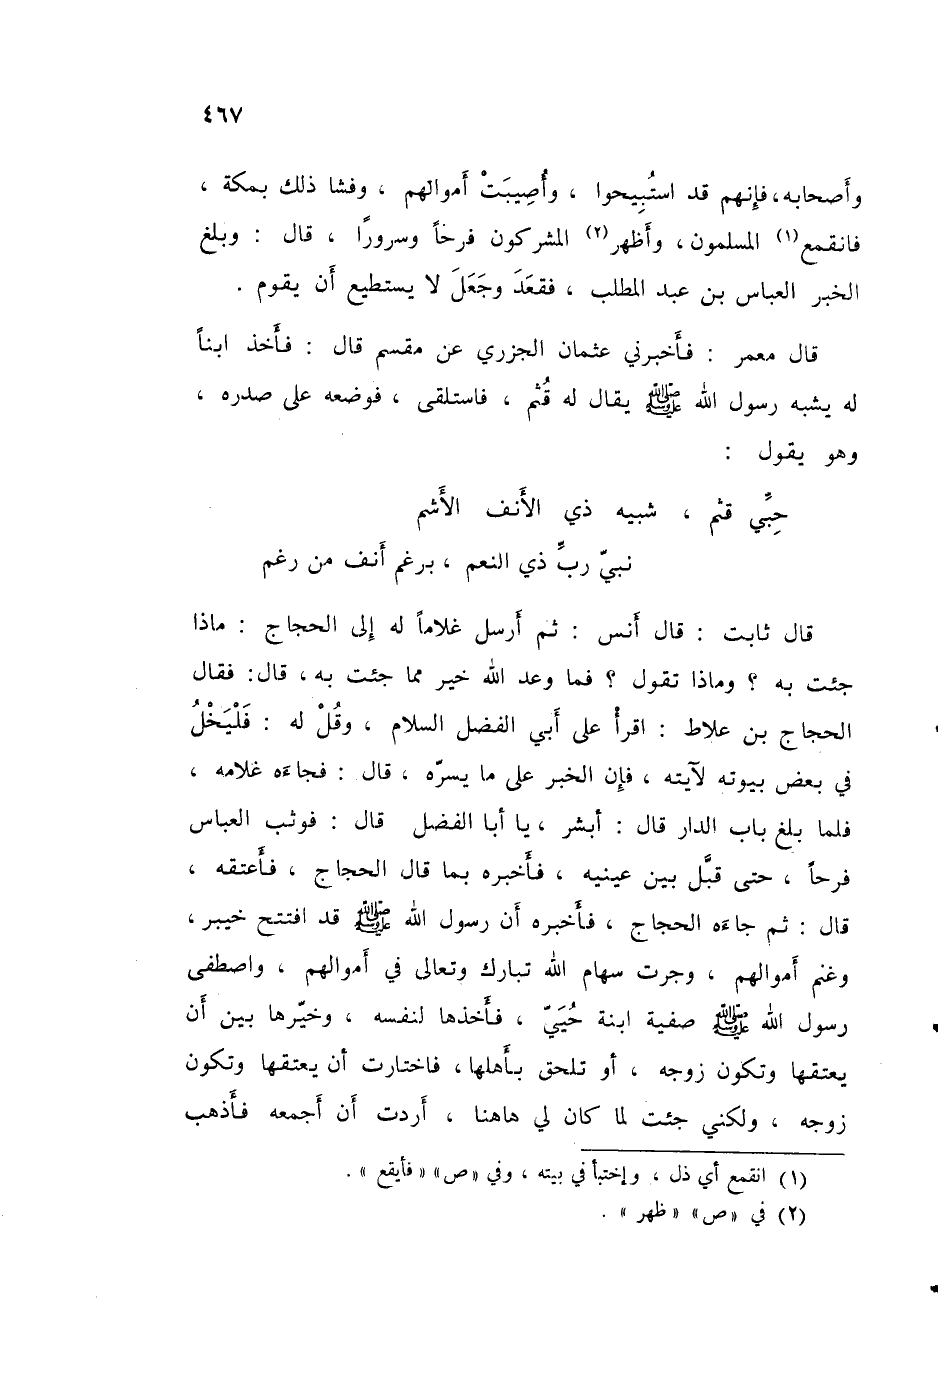 ٤٦٧
وأَصحابه، فإِنهم قد استُبِيحوا ، وأُصِيبَتْ أَموالهم ، وفشا ذلك بمكة ،
فانقمع(١) المسلمون، وأَظهر(٢) المشركون فرحاً وسرورًا ، قال : وبلغ
الخبر العباس بن عبد المطلب ، فقعَدَ وجَعَلَ لا يستطيع أَن يقوم .
قال معمر : فأَخبرني عثمان الجزري عن مقسم قال : فأَخذ ابناً
له يشبه رسول الله ﷺ يقال له قُثم ، فاستلقى ، فوضعه على صدره ،
وهو يقول :
حِبِّي قثم ، شبيه ذي الأَنف الأَشم
نبيّ ربٍّ ذي النعم ، برغم أَنف من رغم
قال ثابت : قال أَنس : ثم أَرسل غلاماً له إِلى الحجاج : ماذا
جئت به ؟ وماذا تقول ؟ فما وعد الله خير مما جئت به ، قال: فقال
الحجاج بن علاط : اقرأْ على أَبي الفضل السلام ، وقُلْ له : فَلْيَخْلُ
في بعض بيوته لآيته ، فإِن الخبر على ما يسرّه ، قال : فجاءه غلامه ،
فلما بلغ باب الدار قال : أَبشر ، يا أَبا الفضل قال : فوثب العباس
فرحاً ، حتى قبَّل بين عينيه ، فأَخبره بما قال الحجاج ، فأَعتقه ،
قال : ثم جاءه الحجاج ، فأَخبره أَن رسول الله ﷺ قد افتتح خيبر ،
وغنم أَموالهم ، وجرت سهام الله تبارك وتعالى في أَموالهم ، واصطفى
رسول الله ﷺ صفية ابنة حُيَيّ ، فأَخذها لنفسه ، وخيّرها بين أَن
يعتقها وتكون زوجه ، أو تلحق بأَهلها ، فاختارت أن يعتقها وتكون
زوجه ، ولكني جئت لما كان لي هاهنا ، أَردت أَن أَجمعه فأَذهب
(١) انقمع أي ذل ، وإختبأ في بيته ، وفي «ص» «فأيقع» .
(٢) في «ص» «ظهر» .